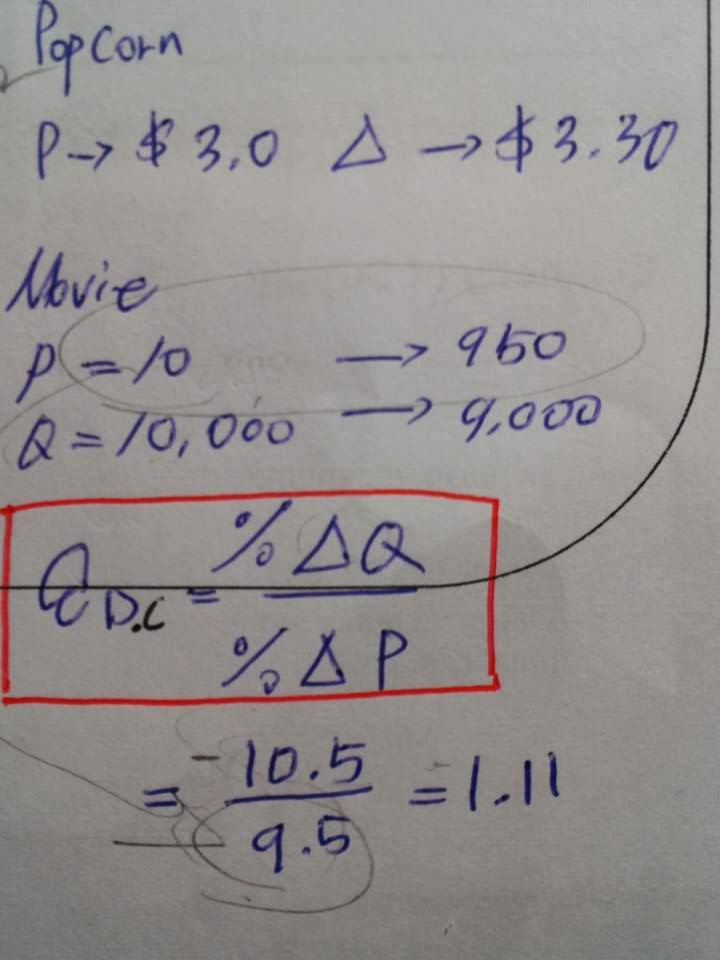 Popcorn
P → $ 3.0 Δ → $ 3.30
Movie
P = 10 → 950
Q = 10,000 → 9,000
e D.C = % Δ Q / % Δ P
= -10.5 / 9.5 = -1.11